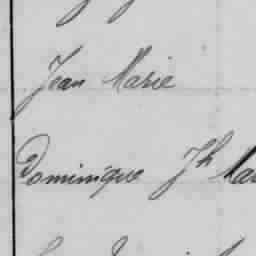 Jean Marie
Dominique Jh